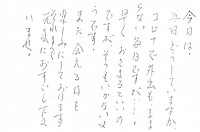 今日は。
毎日どうしていますか
コロナで外出もままな
らない毎日ですが…
早くおさまるといいの
ですが、そうもいかないよ
うです。
また会える日を
楽しみにしております
それまで
元気におすごし下さ
いませ。